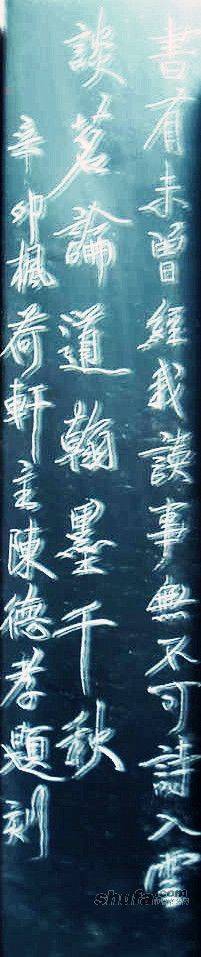 書有未曾經我讀事無不可詩入雲
談茗論道翰墨千秋
辛卯楓荷軒主陳德孝題刻
shufa.com